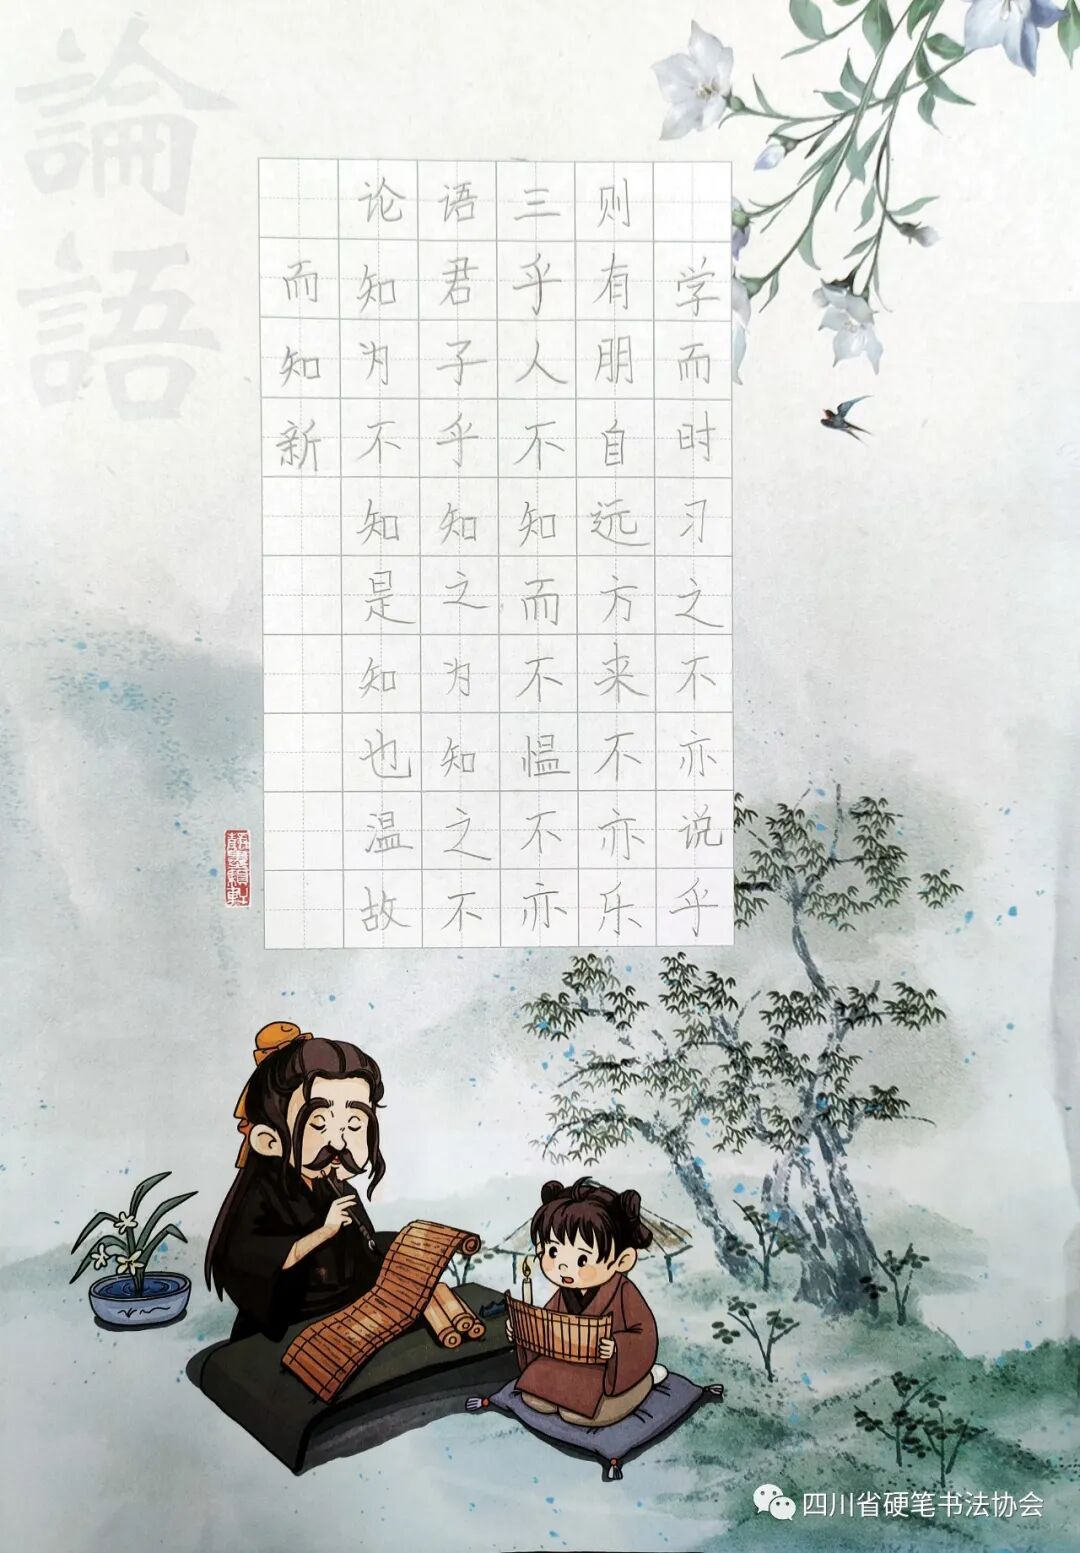 論語
论语三则
学而时习之不亦说乎
有朋自远方来不亦乐
乎人不知而不愠不亦
君子乎知之为知之不
知为不知是知也温故
而知新
四川省硬笔书法协会